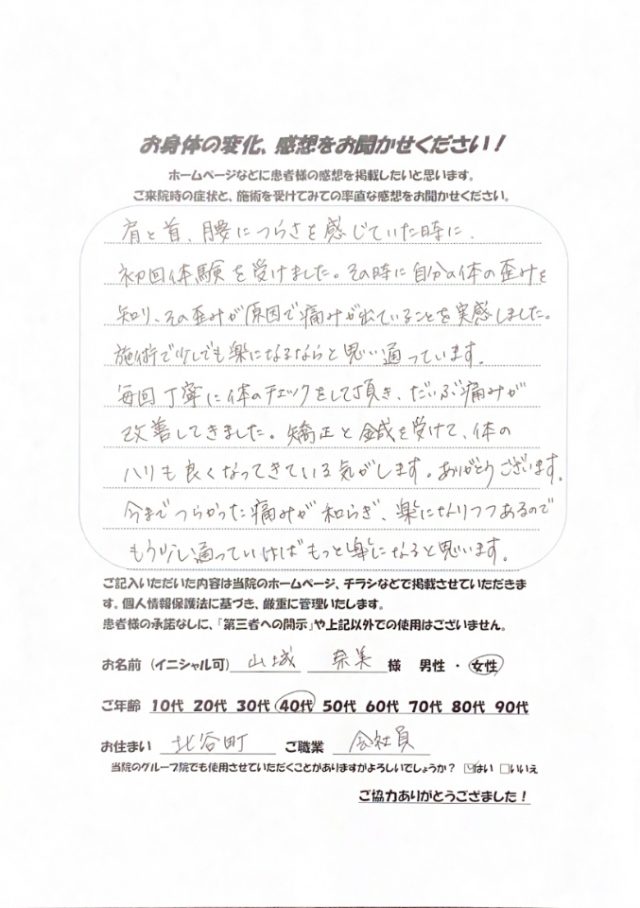 お身体の変化、感想をお聞かせください！
ホームページなどに患者様の感想を掲載したいと思います。
ご来院時の症状と、施術を受けてみての率直な感想をお聞かせください。
肩と首、腰につらさを感じていた時に、
初回体験を受けました。その時に自分の体の歪みを
知り、その歪みが原因で痛みが出ていることを実感しました。
施術で少しでも楽になるならと思い通っています。
毎回丁寧に体のチェックをして頂き、だいぶ痛みが
改善してきました。矯正と鍼を受けて、体の
ハリも良くなってきている気がします。ありがとうございます。
今までつらかった痛みが和らぎ、楽になりつつあるので
もう少し通っていけばもっと楽になると思います。
ご記入いただいた内容は当院のホームページ、チラシなどで掲載させていただきま
す。個人情報保護法に基づき、厳重に管理いたします。
患者様の承諾なしに、「第三者への開示」や上記以外での使用はございません。
お名前（イニシャル可） 山城 奈美 様 男性・女性
ご年齢 10代 20代 30代 40代 50代 60代 70代 80代 90代
お住まい 北谷町 ご職業 会社員
当院のグループ院でも使用させていただくことがありますがよろしいでしょうか？ ☑はい □いいえ
ご協力ありがとうござました！